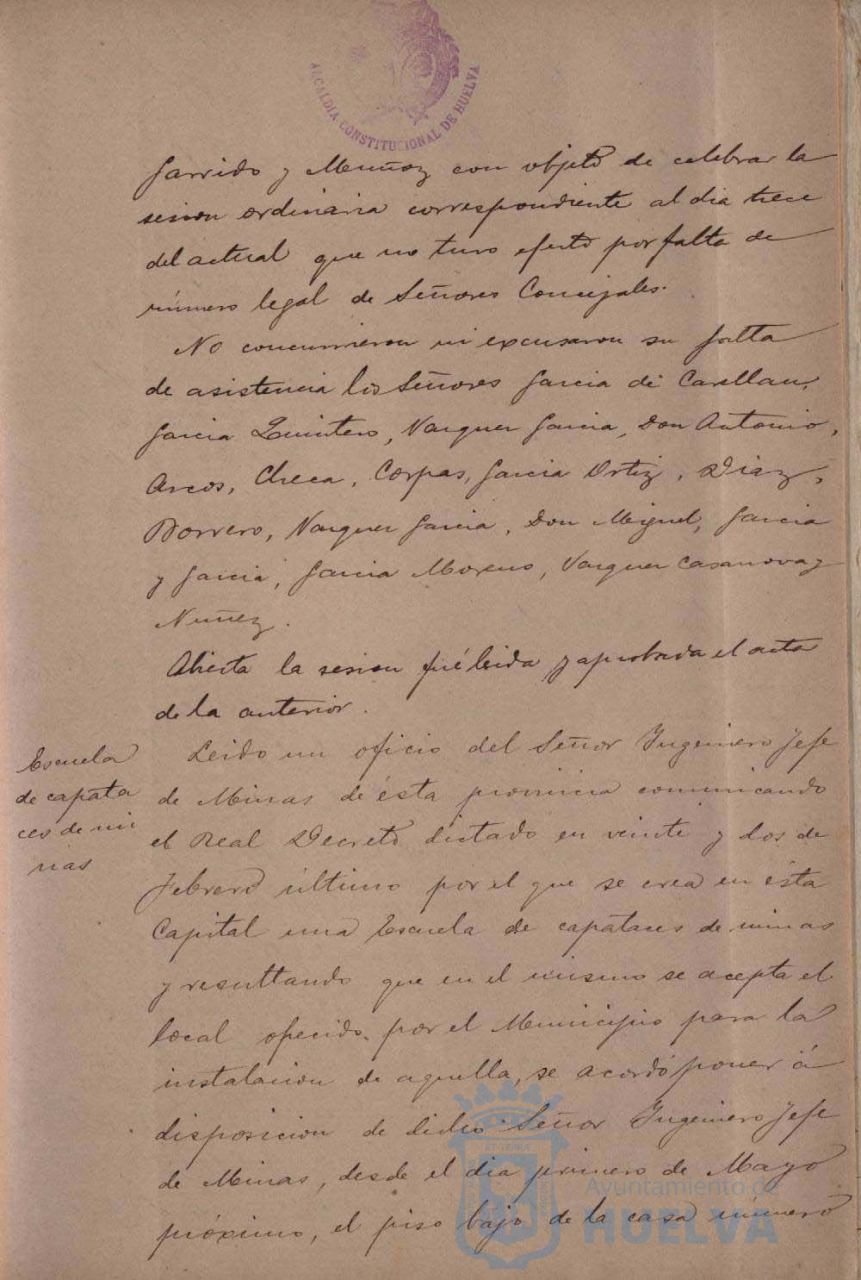 ALCALDÍA CONSTITUCIONAL DE HUELVA
Garrido y Muñoz con objeto de celebrar la
sesion ordinaria correspondiente al dia trece
del actual que no tuvo efecto por falta de
número legal de Señores Concejales.
No concurrieron ni excusaron su falta
de asistencia los Señores Garcia de
Garcia Quintero, Vazquez Garcia, Don Antonio,
Arcos, Checa, Corpas, Garcia Ortiz, Diaz,
Borrero, Vazquez Garcia, Don Miguel, Garcia
y Garcia, Garcia Moreno, Vazquez Casanova y
Nuñez.
Abierta la sesion fué leida y aprobada el acta
de la anterior.
Escuela
de capata
ces de mi
nas
Leido un oficio del Señor Ingeniero Jefe
de Minas de ésta provincia comunicando
el Real Decreto dictado en veinte y dos de
Febrero último por el que se crea en ésta
Capital una Escuela de capataces de minas
y resultando que en el mismo se acepta el
local ofrecido por el Municipio para la
instalacion de aquella, se acordó poner á
disposicion de dicho Señor Ingeniero Jefe
de Minas, desde el dia primero de Mayo
próximo, el piso bajo de la casa número
Ayuntamiento de
HUELVA